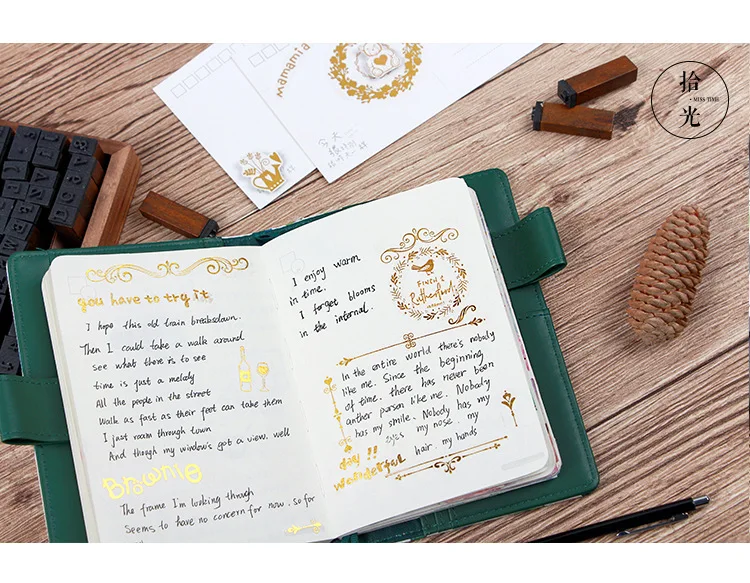 拾光
MISS TIME
mamamia
今天
you have to try it
I hope this old train breaksdown.
Then I could take a walk around
see what there is to see
time is just a melody
All the people in the street
Walk as fast as their feet can take them
I just roam through town
And though my window's got a view. well
Brownie
The frame I'm looking through
Seems to have no concern for now. so for
I enjoy warm
in time.
I forget blooms
in the internal.
FINCH &
Rutherford
In the entire world there's nobody
like me. Since the beginning
of time. there has never been
anther person like me. Nobody
has my smile. Nobody has my
eyes my nose. my
hair. my hands
day!!
wonderful